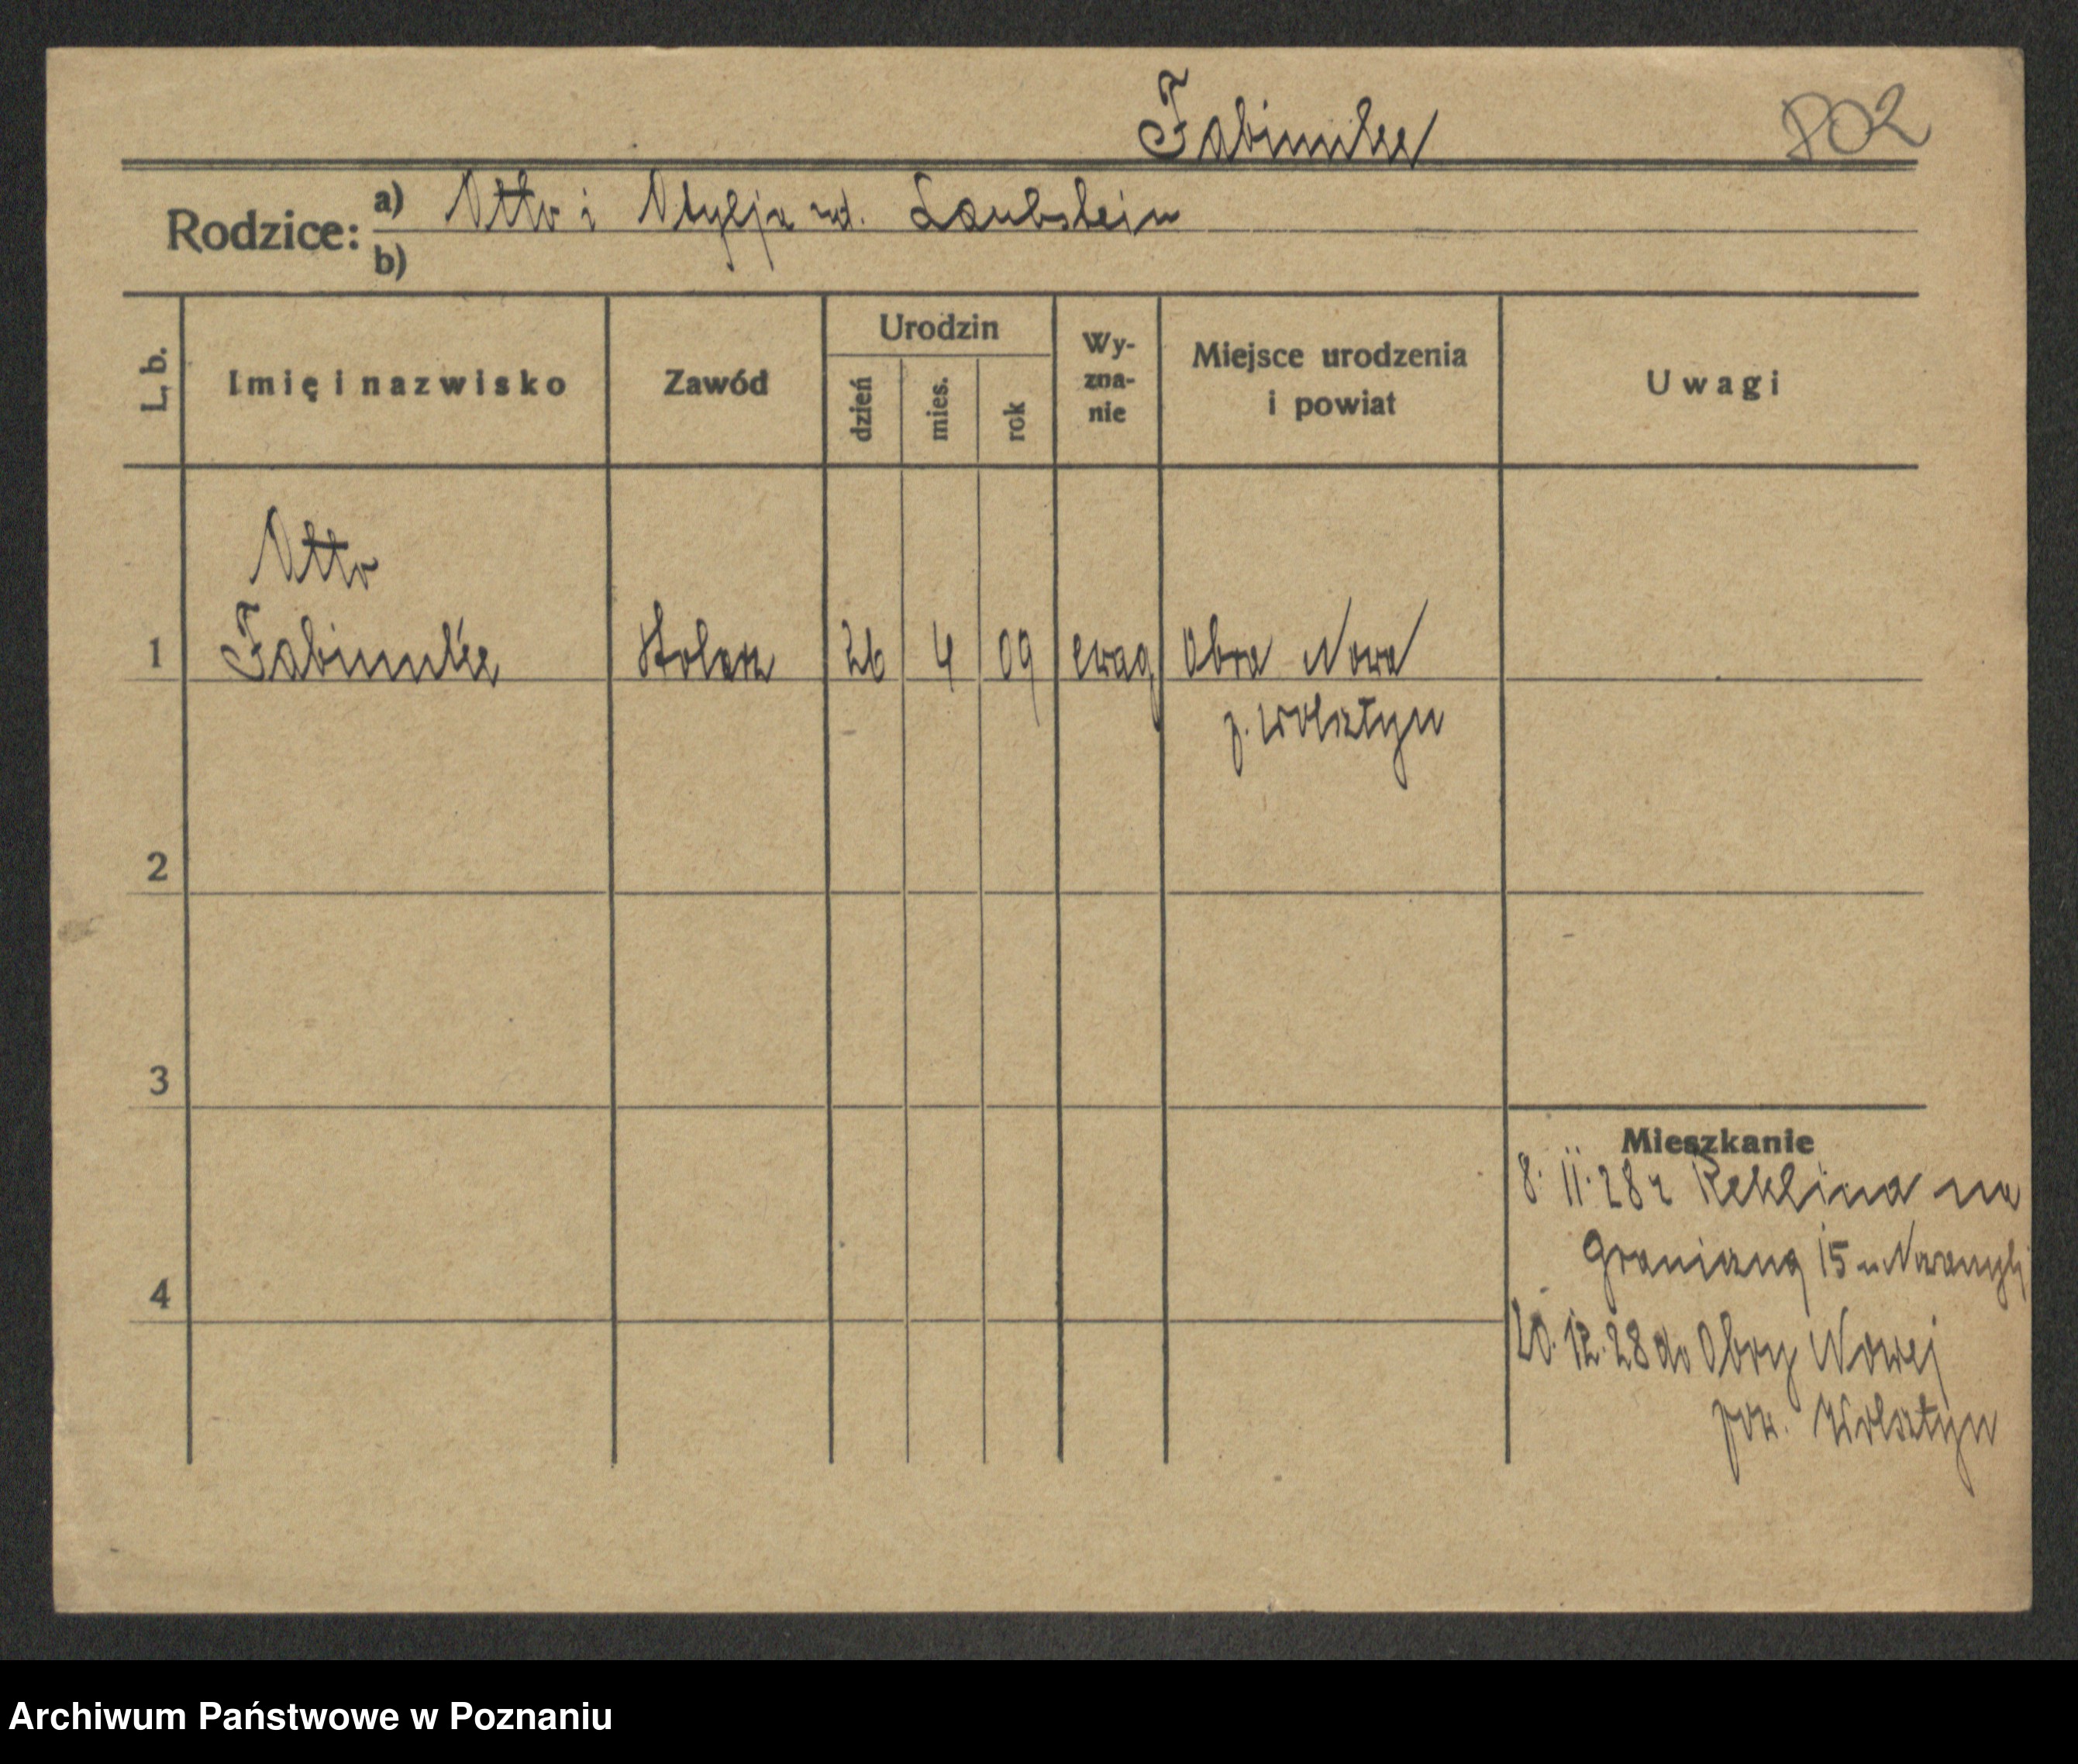 Fabiunke
802
Rodzice: a) Otto i Otylja rd. Laubstein
b)
L. b.
Imię i nazwisko
Zawód
Urodzin
dzień
mies.
rok
Wy-
zna-
nie
Miejsce urodzenia
i powiat
Uwagi
Otto
1 Fabiunke Stolarz 26 4 09 ewag Obra Nowa
p. Wolsztyn
2
3
4
Mieszkanie
8. 11. 28 z Reklina na
Graniczną 15 u
20. 12. 28 do Obry Nowej
pow. Wolsztyn
Archiwum Państwowe w Poznaniu